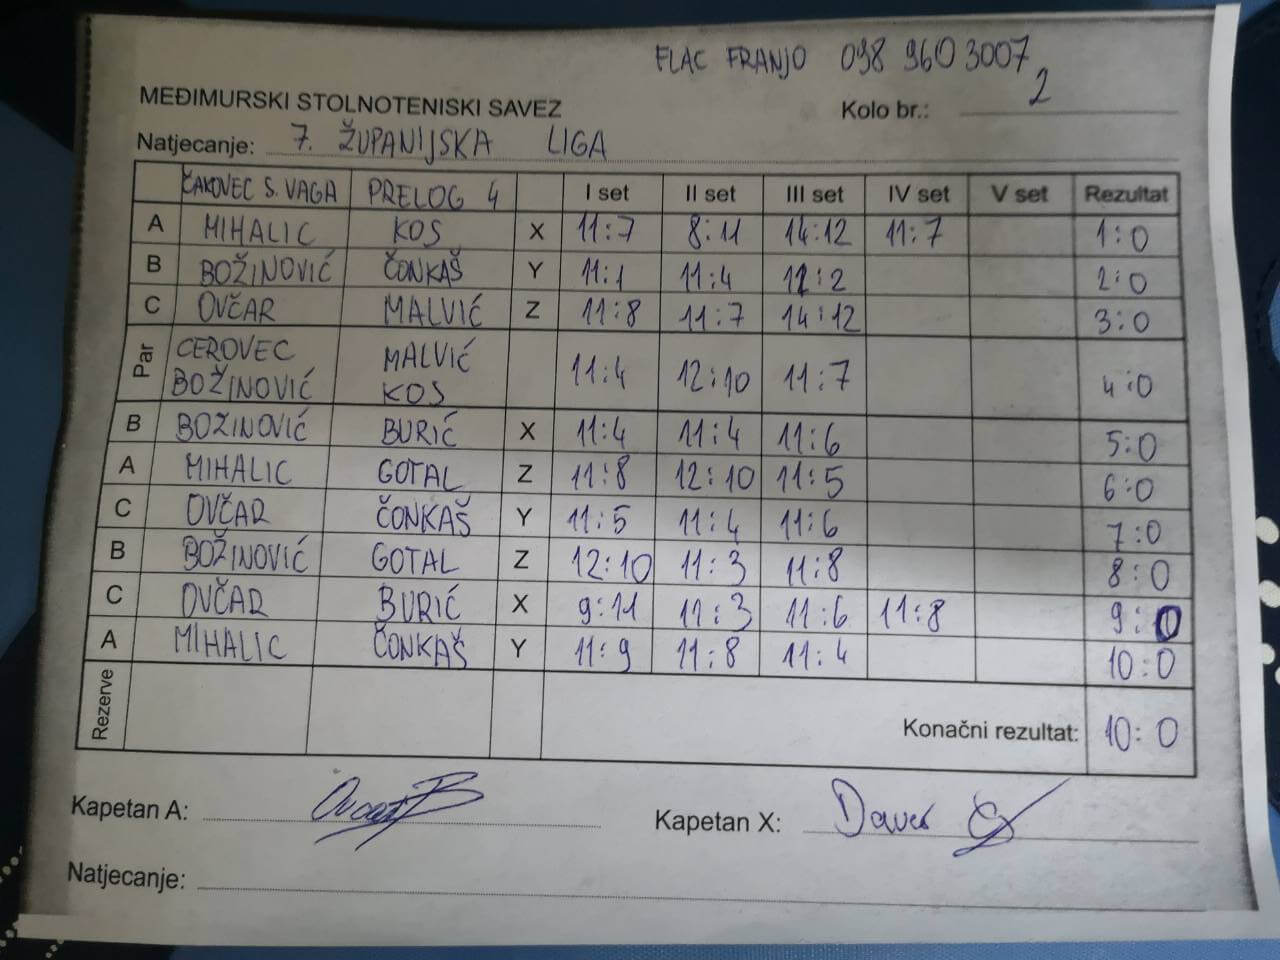 FLAC FRANJO 098 960 3007
MEĐIMURSKI STOLNOTENISKI SAVEZ
Kolo br.: 2
Natjecanje: 7. ŽUPANIJSKA LIGA
ČAKOVEC S. VAGA PRELOG 4 I set II set III set IV set V set Rezultat
A MIHALIC KOS X 11:7 8:11 14:12 11:7 1:0
B BOŽINOVIĆ ČONKAŠ Y 11:1 11:4 11:2 2:0
C OVČAR MALVIĆ Z 11:8 11:7 14:12 3:0
Par CEROVEC BOŽINOVIĆ MALVIĆ KOS 11:4 12:10 11:7 4:0
B BOŽINOVIĆ BURIĆ X 11:4 11:4 11:6 5:0
A MIHALIC GOTAL Z 11:8 12:10 11:5 6:0
C OVČAR ČONKAŠ Y 11:5 11:4 11:6 7:0
B BOŽINOVIĆ GOTAL Z 12:10 11:3 11:8 8:0
C OVČAR BURIĆ X 9:11 11:3 11:6 11:8 9:0
A MIHALIC ČONKAŠ Y 11:9 11:8 11:4 10:0
Rezerve Konačni rezultat: 10:0
Kapetan A:
Kapetan X:
Natjecanje: